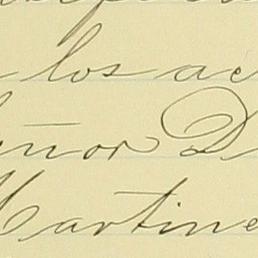 los ac
eñor D
Martine